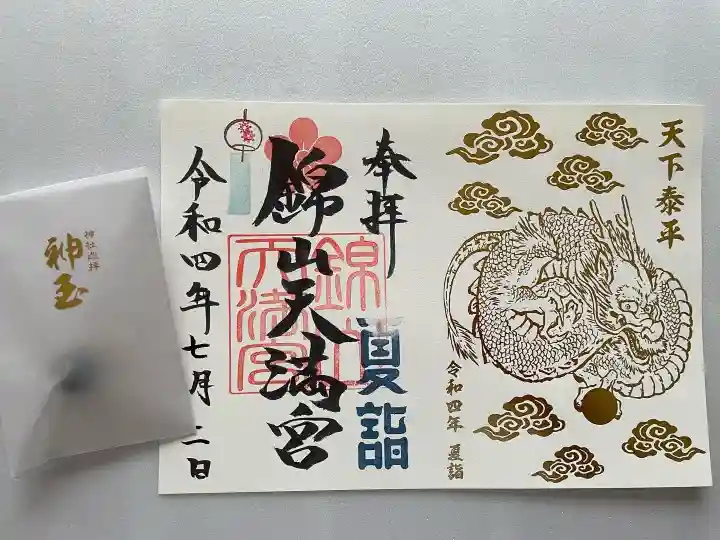 天下泰平
令和四年 夏詣
奉拝
夏詣
錦山天満宮
錦山
天満宮
令和四年七月二日
神社巡拝
神玉